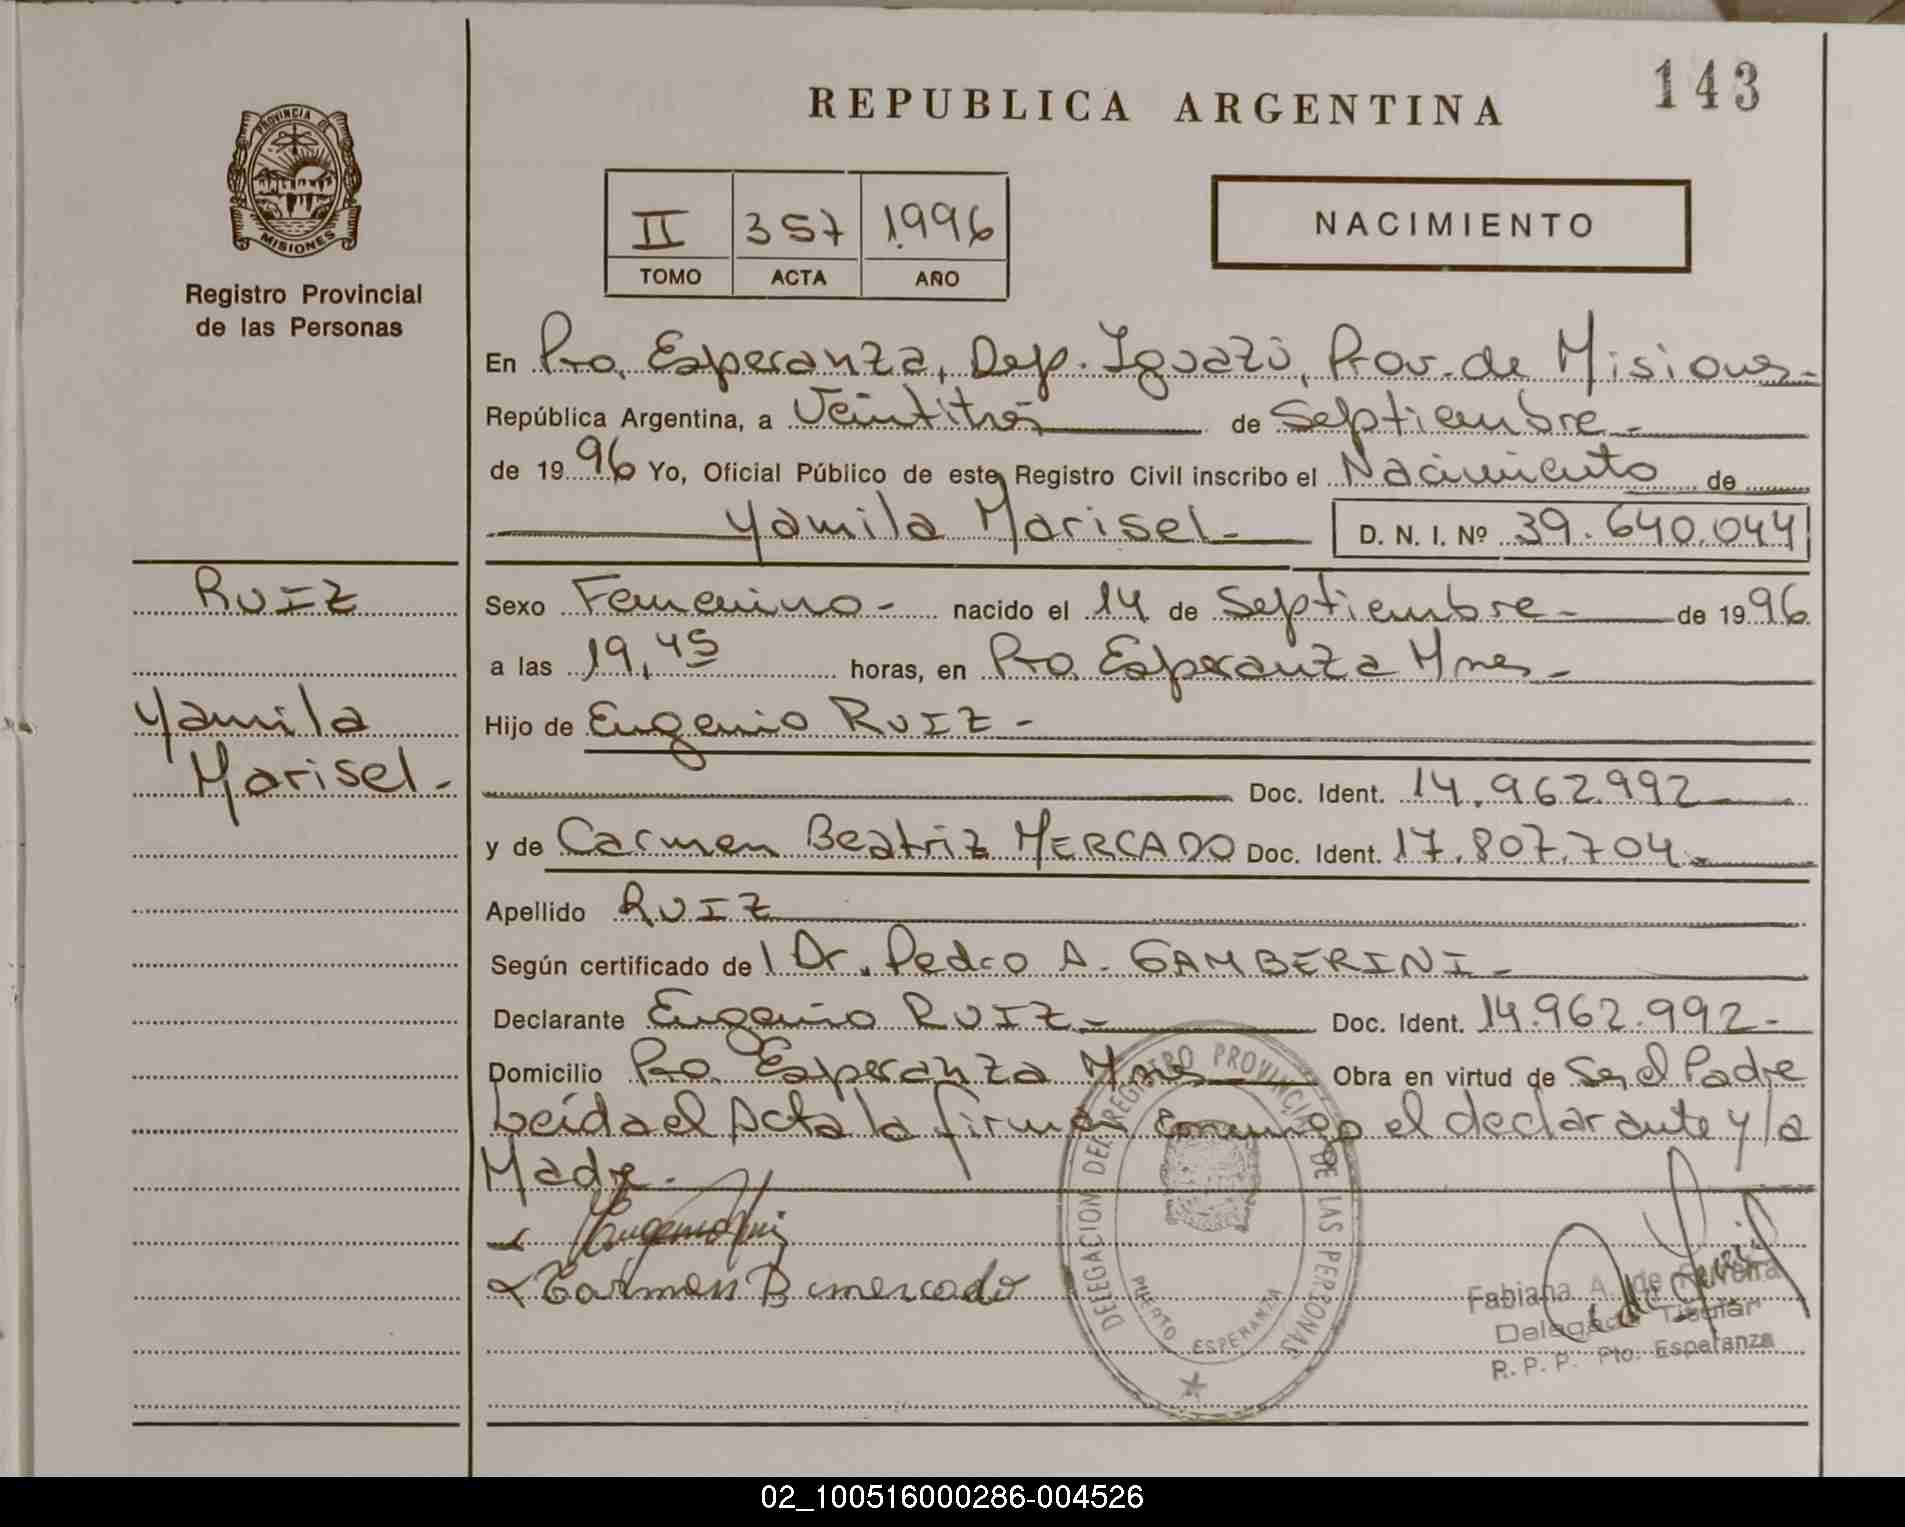 143
REPUBLICA ARGENTINA
PROVINCIA DE
MISIONES
Registro Provincial
de las Personas
II 357 1996
TOMO ACTA AÑO
NACIMIENTO
En Pto. Esperanza, Dep. Iguazú, Prov. de Misiones-
República Argentina, a Veintitrés de Septiembre-
de 1996 Yo, Oficial Público de este Registro Civil inscribo el Nacimiento de
Yamila Marisel- D. N. I. Nº 39.640.044
RUIZ
Yamila
Marisel-
Sexo Femenino- nacido el 14 de Septiembre- de 1996
a las 19,45 horas, en Pto. Esperanza Mnes-
Hijo de Eugenio RUIZ-
Doc. Ident. 14.962.992
y de Carmen Beatriz MERCADO Doc. Ident. 17.807.704-
Apellido RUIZ
Según certificado de l Dr. Pedro A. GAMBERINI-
Declarante Eugenio RUIZ- Doc. Ident. 14.962.992-
Domicilio Pto. Esperanza Mnes Obra en virtud de Ser el Padre
Leída el Acta la firman conmigo el declarante y la
Madre-
Eugenio Ruiz
Carmen B mercado
DELEGACION DEL REGISTRO PROVINCIAL DE LAS PERSONAS
PUERTO ESPERANZA
Fabiana A. de
Delegada Titular
R. P. P. Pto. Esperanza
02_100516000286-004526